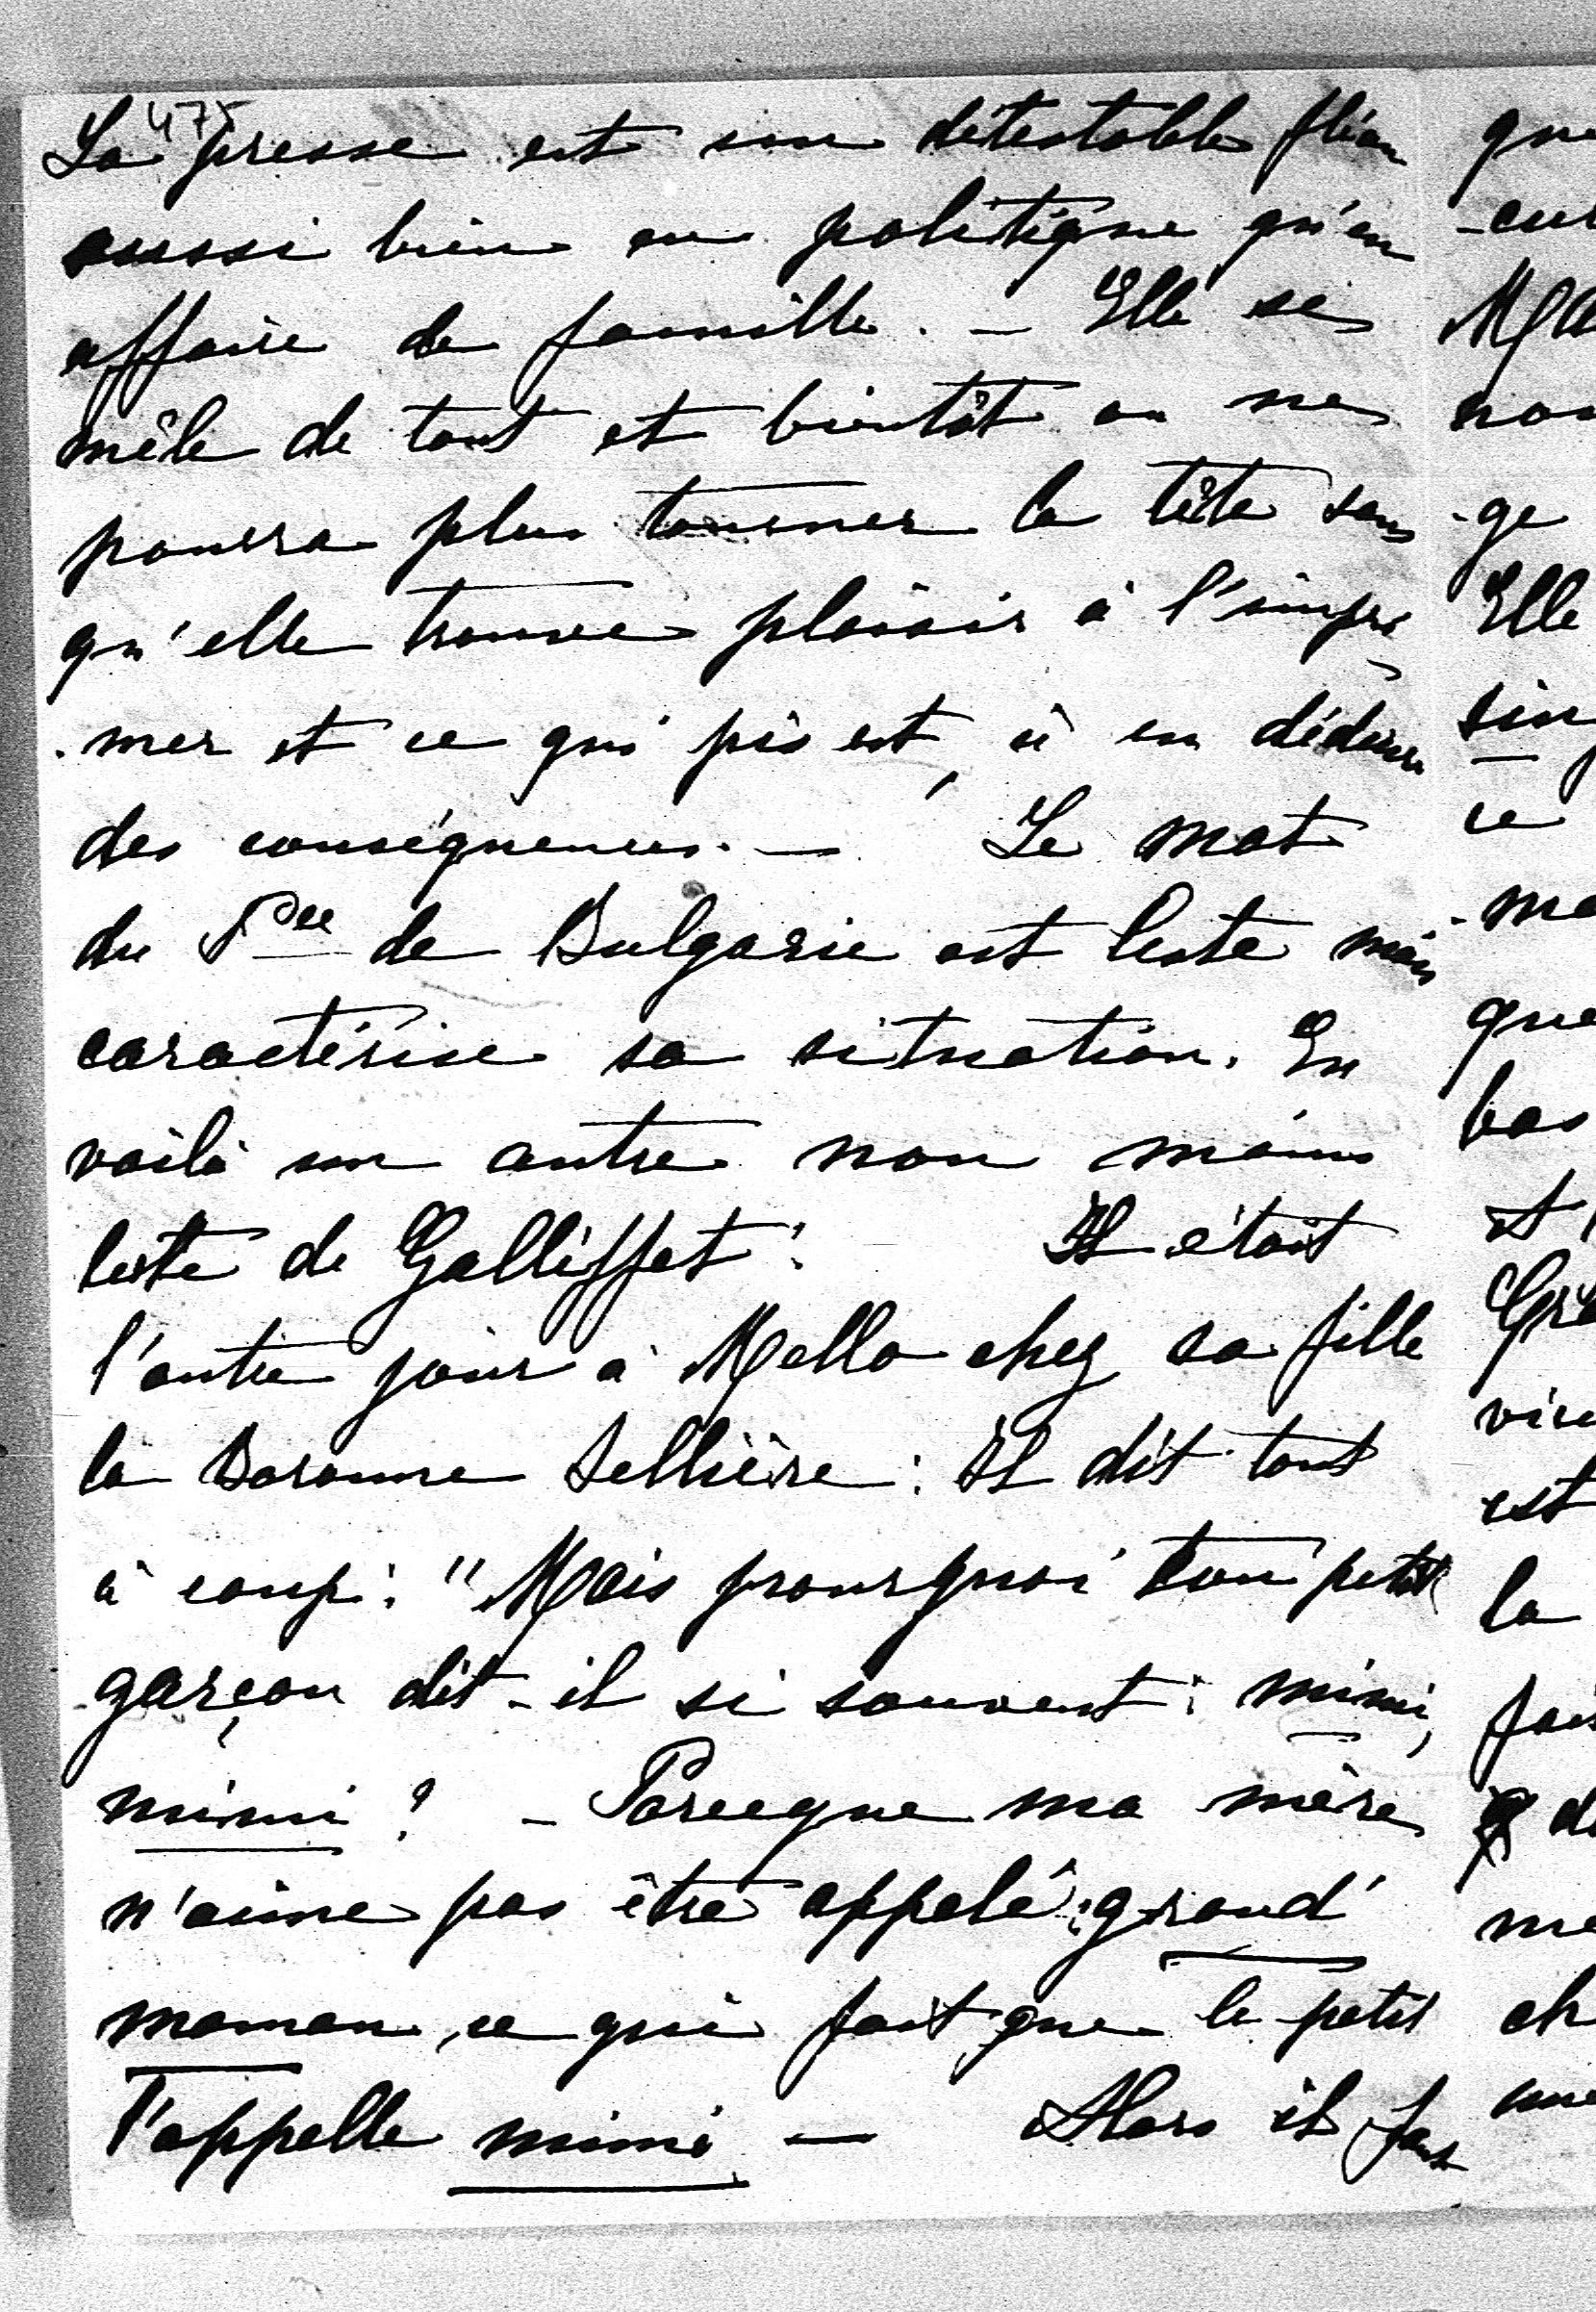 475
La presse est un détestable fléau
aussi bien en politique qu'en
affaire de famille. — Elle se
mêle de tout et bientôt on ne
pourra plus tourner la tête sans
qu'elle trouve plaisir à l'impri
-mer et ce qui pis est, à en déduire
des conséquences. — Le mot
du Pce de Bulgarie est leste mais
caractérise sa situation. En
voilà un autre non moins
leste de Galliffet : Il était
l'autre jour à Mello chez sa fille
la Baronne Sellière : Il dit tout
à coup : "Mais pourquoi ton petit
garçon dit-il si souvent : mimi,
mimi ? — Parceque ma mère
n'aime pas être appelé : grand'
maman, ce qui fait que le petit
l'appelle mimi — Alors il faut
que
-cur
non
-ge
Elle
sin
ce
-me
que
bas
et
Gré
vire
est
la
fai
de
me
ch
une